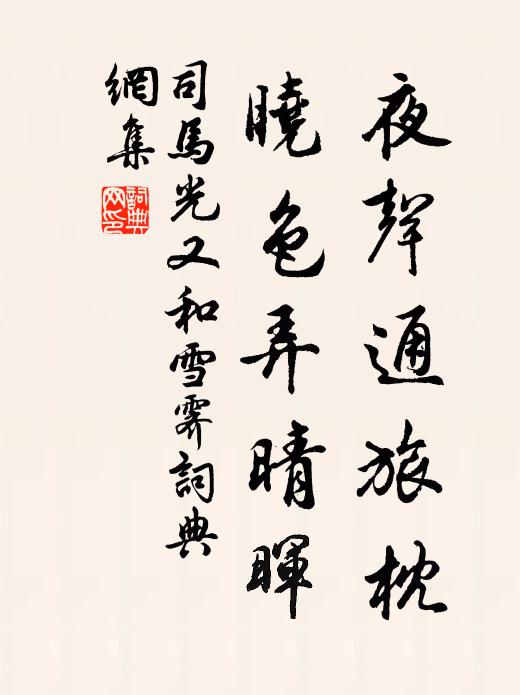 夜聲通旅枕
曉色弄晴暉
司馬光又和雪霽詞典
網集
詞典網印